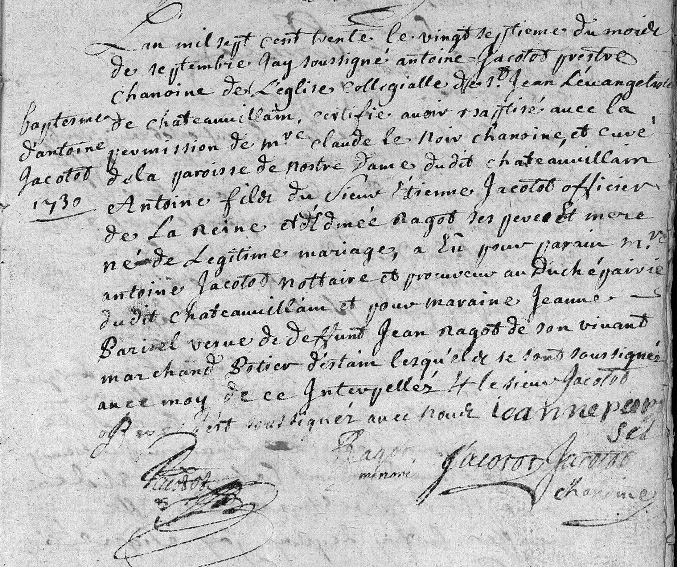 Lan mil sept cent trente le vingt septieme du mois
de septembre Jay soussigné antoine Jacotot prestre
chanoine de L'église Collegialle de st Jean Levangeliste
de chateauvillain, certifie avoir baptisé avec la
permission de mre claude le Noir chanoine, et curé
de la paroisse de Nostre Dame dudit chateauvillain
Antoine fils du sieur Etienne Jacotot officier
de La Reine et Ragot ses pere Et mere
né de Legitime mariage, a Eü pour parain mre
antoine Jacotot Nottaire et procureur au Duché pairie
dudit chateauvillain et pour maraine Jeanne
Parisel veuve de deffunt Jean Ragot de son vivant
marchand Potier destain lesquels se sont soussignés
avec moy de ce Interpellez le sieur Jacotot
s'est soussigner avec nous
baptesme
d'antoine
Jacotot
1730
ieanne pary
sel
Ragot
Jacotot Jacotot
chanoine